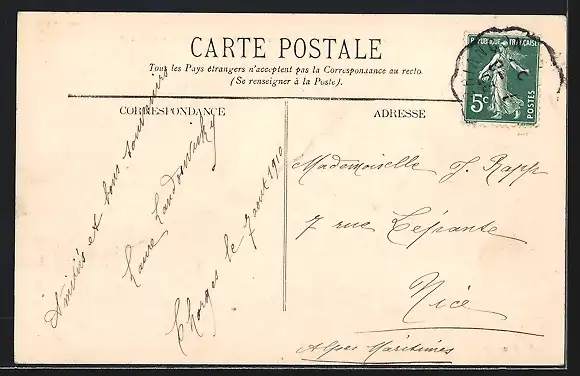 CARTE POSTALE
Tous les Pays étrangers n'acceptent pas la Correspondance au recto.
(Se renseigner à la Poste).
CORRESPONDANCE
ADRESSE
REPUBLIQUE FRANÇAISE
5c
POSTES
Amitiés et bons souvenirs
Laure
Chorges le 7 aout 1910
Mademoiselle J. Rapp
7 rue Lépante
Nice
Alpes Maritimes